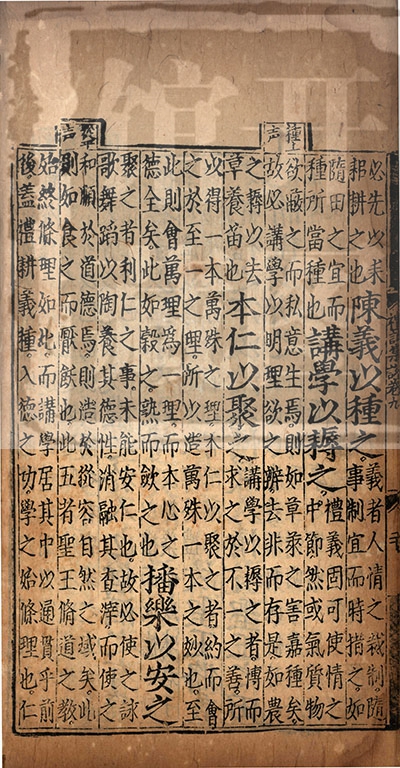 必先以耒
耜耕之也
陳義以種之
義者人情之裁制隨
事制宜而時措之如
隨田之宜而
種所當種也
講學以耨之
禮義固可使情之
中節然或氣質物
種上
声
欲蔽之而私意生焉則如草萊之害嘉種矣
故必講學以明理欲之辨去非而存是如農
之耨以去
草養苗也
本仁以聚之
講學以耨之者博而
求之於不一之善所
以得一本萬殊之理本仁以聚之者約而會
之於至一之理所以造萬殊一本之妙也至
此則會萬理爲一理而本心之
德全矣此如穀之熟而斂之也
播樂以安之
聚之者利仁之事未能安仁也故必使之詠
歌舞蹈以陶養其德性消融其查滓而使之
和順於道德焉則造於從容自然之域矣此
則如食之而厭飫也此五者聖王脩道之教
始終條理如此而講學居其中以通貫乎前
後蓋禮耕義種入德之功學之始條理也仁